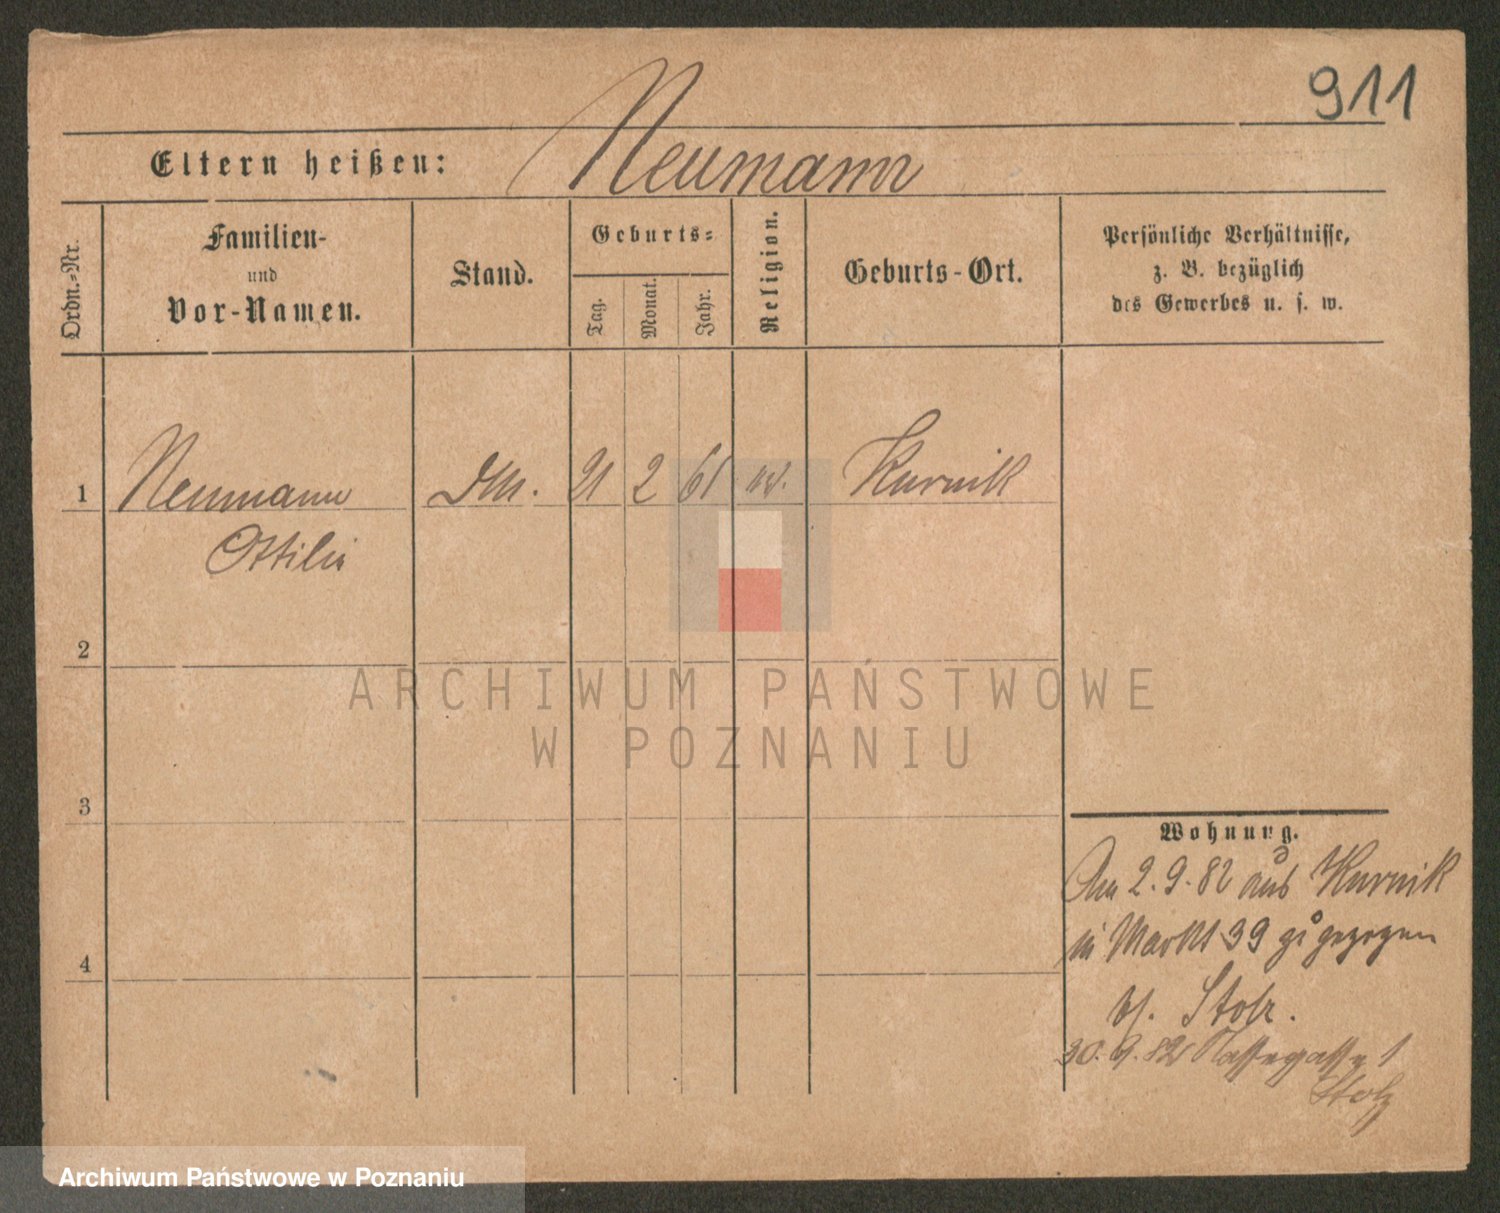 911
Eltern heißen: Neumann
Ordn.-Nr.
Familien-
und
Vor-Namen.
Stand.
Geburts-
Tag.
Monat.
Jahr.
Religion.
Geburts-Ort.
Persönliche Verhältnisse,
z. B. bezüglich
des Gewerbes u. s. w.
1 Neumann 21 2 61 Kurnik
Ottilie
2
3
4
Wohnung.
Am 2.9.82 aus Kurnik
in Markt 39 zugezogen
bj. Stolz.
30.9.82 Nassegasse 1
Stolz
ARCHIWUM PAŃSTWOWE
W POZNANIU
Archiwum Państwowe w Poznaniu